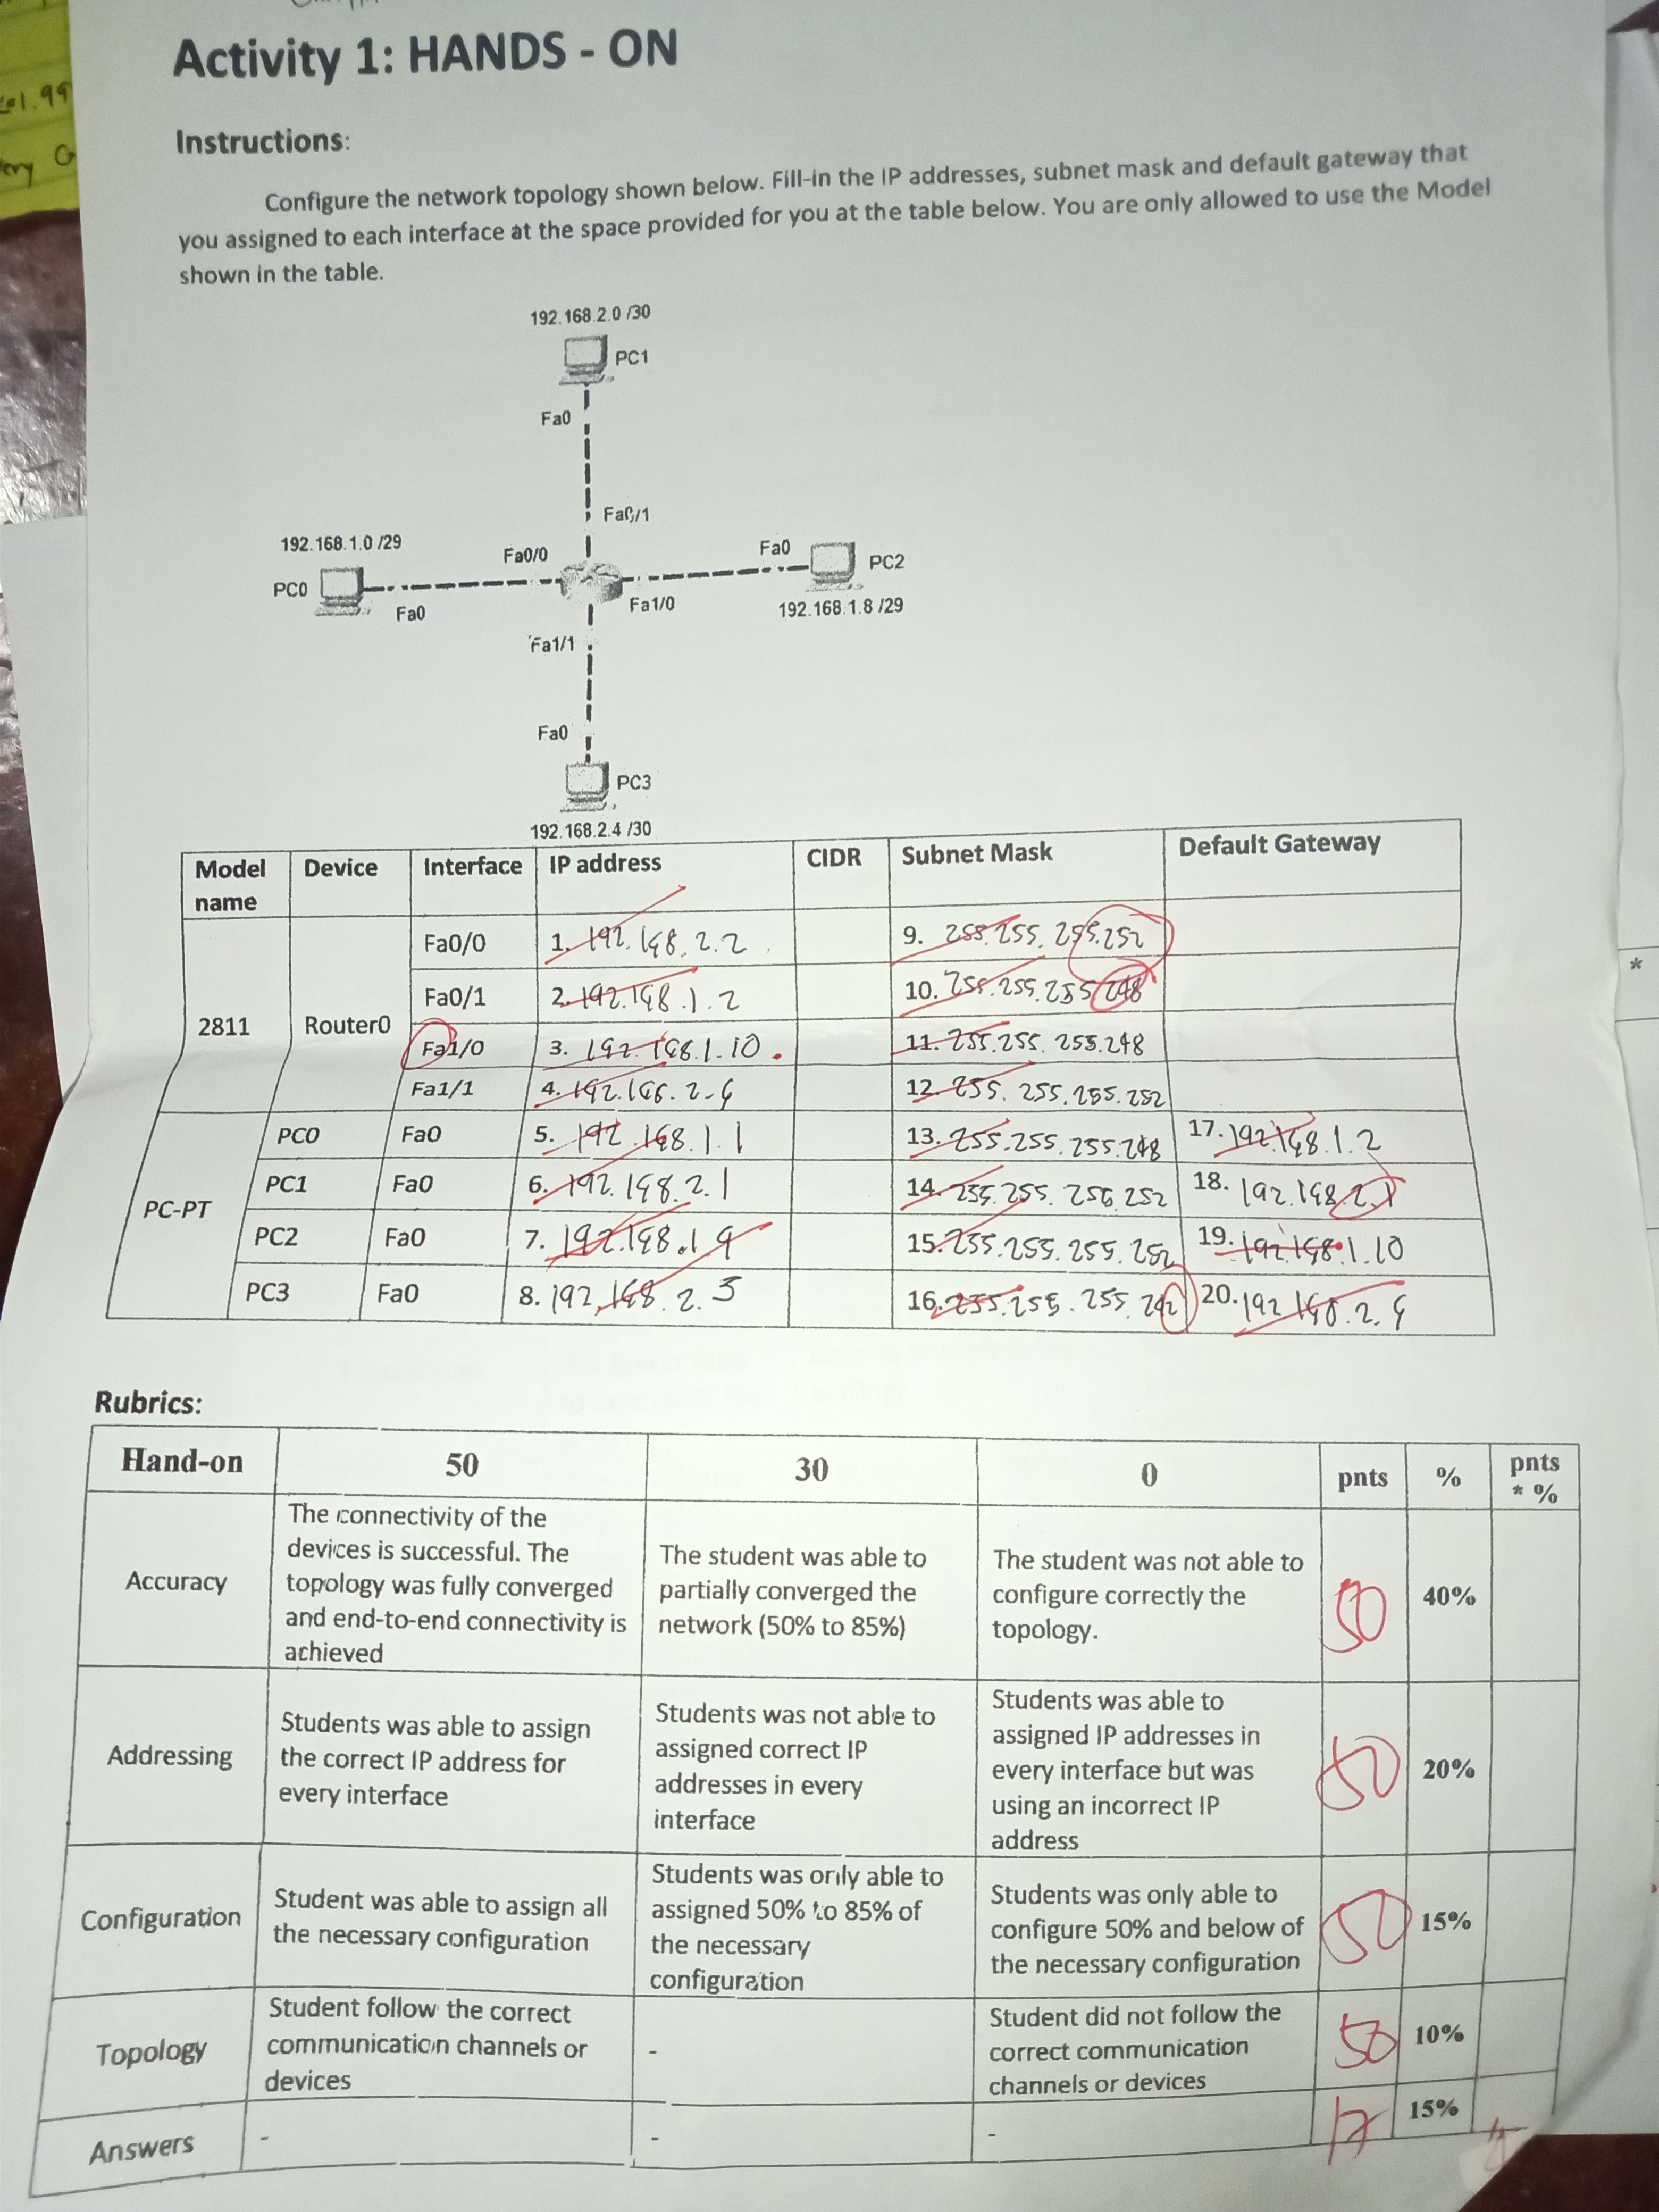 Activity 1: HANDS - ON
Instructions:
Configure the network topology shown below. Fill-in the IP addresses, subnet mask and default gateway that
you assigned to each interface at the space provided for you at the table below. You are only allowed to use the Model
shown in the table.
192.168.2.0 /30
PC1
Fa0
Fa0/1
192.168.1.0 /29
Fa0/0
Fa0
PC2
PC0
Fa0
Fa1/0
192.168.1.8 /29
Fa1/1
Fa0
PC3
192.168.2.4 /30
Model name Device Interface IP address CIDR Subnet Mask Default Gateway
2811 Router0 Fa0/0 1. 192.168.2.2 9. 255.255.255.252
Fa0/1 2. 192.168.1.2 10. 255.255.255.248
Fa1/0 3. 192.168.1.10 11. 255.255.255.248
Fa1/1 4. 192.168.2.6 12. 255.255.255.252
PC-PT PC0 Fa0 5. 192.168.1.1 13. 255.255.255.248 17. 192.168.1.2
PC1 Fa0 6. 192.168.2.1 14. 255.255.255.252 18. 192.168.2.1
PC2 Fa0 7. 192.168.1.9 15. 255.255.255.252 19. 192.168.1.10
PC3 Fa0 8. 192.168.2.5 16. 255.255.255. 20. 192.168.2.6
Rubrics:
Hand-on 50 30 0 pnts % pnts * %
Accuracy
The connectivity of the
devices is successful. The
topology was fully converged
and end-to-end connectivity is
achieved
The student was able to
partially converged the
network (50% to 85%)
The student was not able to
configure correctly the
topology.
50
40%
Addressing
Students was able to assign
the correct IP address for
every interface
Students was not able to
assigned correct IP
addresses in every
interface
Students was able to
assigned IP addresses in
every interface but was
using an incorrect IP
address
50
20%
Configuration
Student was able to assign all
the necessary configuration
Students was only able to
assigned 50% to 85% of
the necessary
configuration
Students was only able to
configure 50% and below of
the necessary configuration
50
15%
Topology
Student follow the correct
communication channels or
devices
-
Student did not follow the
correct communication
channels or devices
50
10%
Answers
-
-
-
17
15%